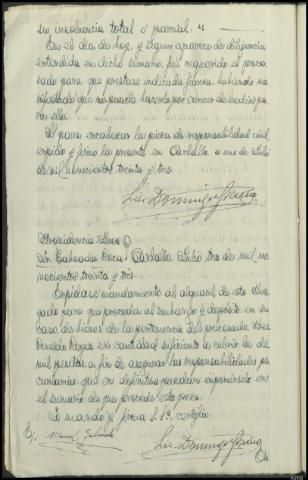 su insolvencia total ó parcial.
En el día de hoy, y según aparece de diligencia
extendida en dicho sumario, fué requerido el procesado
para que prestase indicada fianza, habiendo manifestado
que no puede hacerlo por carecer de medios para
ello.
Y para encabezar la pieza de responsabilidad civil
expido y firmo la presente en Carballo a uno de Julio
de mil novecientos treinta y tres.
Ldo. Domingo
Providencia Juez
Sr. Taboada Roca. Carballo Julio tres de mil novecientos
treinta y tres.
Expídase mandamiento al alguacil de este Juzgado
para que proceda al embargo y depósito en su
caso de bienes de la pertenencia del procesado José
en cantidad suficiente a cubrir la de
mil pesetas, a fin de asegurar las responsabilidades pecuniarias
que en definitiva puedan imponérsele en
el sumario de que procede esta pieza.
Lo mandó y firma S. Sª. certifico
E/. Manuel Taboada
Ldo. Domingo